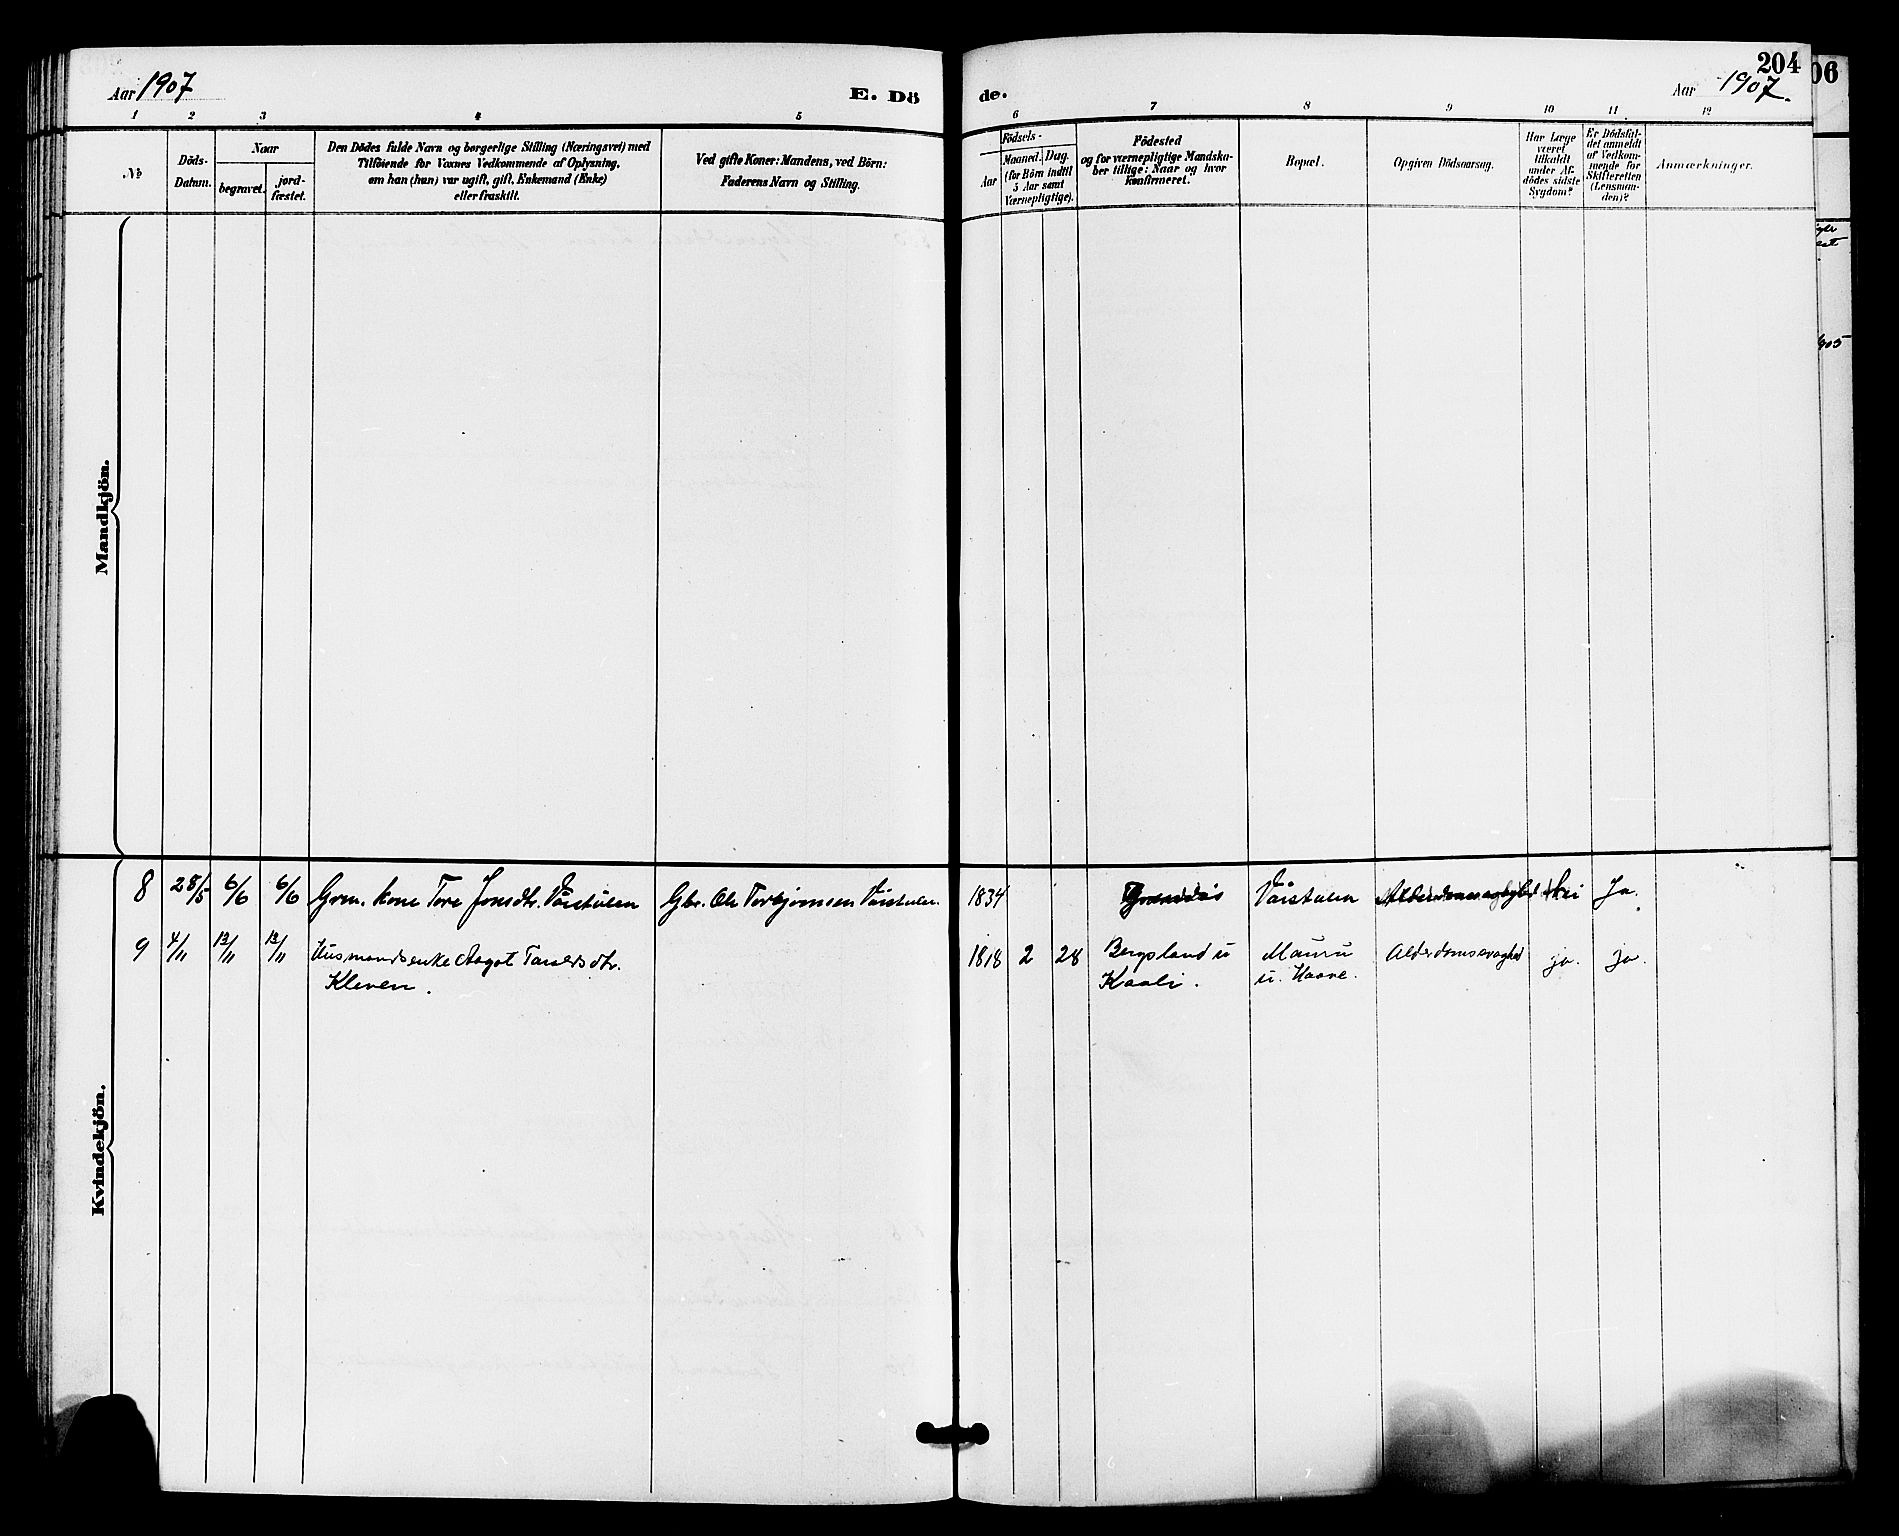 Aar 1907
E. Dö
de.
Aar 1907.
204
06
1 2 3 4 5 6 7 8 9 10 11 12
№
Döds-
Datum.
Naar
begravet.
jord-
fæstet.
Den Dödes fulde Navn og borgerlige Stilling (Næringsvei) med
Tilföiende for Voxnes Vedkommende af Oplysning,
om han (hun) var ugift, gift, Enkemand (Enke)
eller fraskilt.
Ved gifte Koner: Mandens, ved Börn:
Faderens Navn og Stilling.
Födsels-
Aar
Maaned.
Dag.
(for Börn indtil
5 Aar samt
Værnepligtige).
Födested
og for værnepligtige Mandska-
ber tillige: Naar og hvor
konfirmeret.
Bopæl.
Opgiven Dödsaarsag.
Har Læge
været
tilkaldt
under Af-
dödes sidste
Sygdom?
Er Dödsfal-
det anmeldt
af Vedkom-
mende for
Skifteretten
(Lensman-
den)?
Anmærkninger.
Mandkjön.
Kvindekjön.
8 28/5 6/6 6/6 Grm. kone Tore Jonsdtr. Vaastulen Gbr. Ole Torbjørnsen Vaastulen 1834 Vaastulen Alderdomssvaghed Nei Ja.
9 4/11 13/11 13/11 Husmandsenke Aagot Tarsldsdtr. 1818 2 28 Bergsland u Mauru Alderdomssvaghed ja. ja.
Kleven. Kaali. u. Haave.